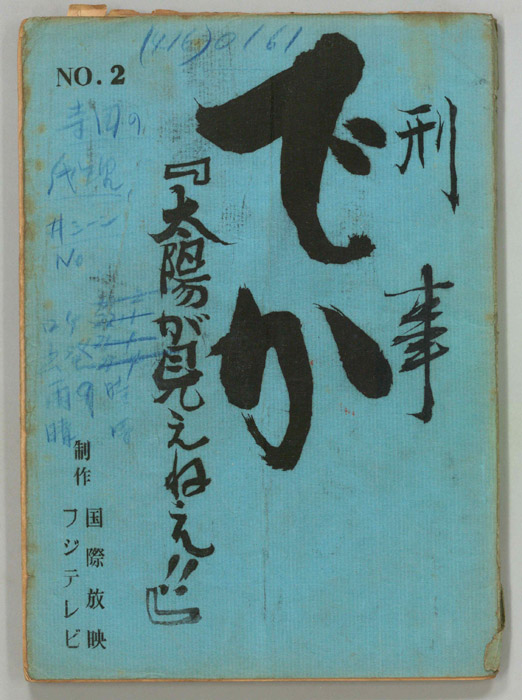 (416)0161
NO.2
刑事
でか
『太陽が見えねえ!!』
寺田の
井シーン
No
ロケ
雨9時
晴
制作
国際放映
フジテレビ